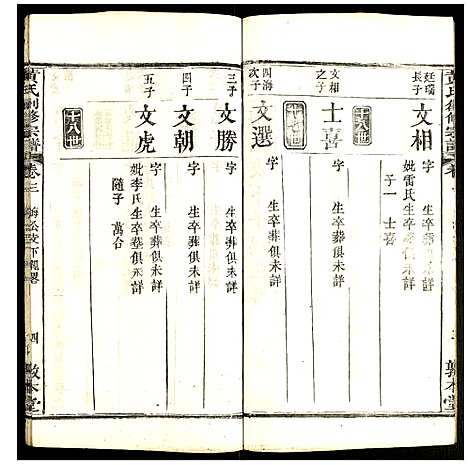 黄氏創修宗譜
廷瑞
長子
文相
字
生卒葬俱未詳
妣雷氏生卒葬俱未詳
子一 士喜
文相
之子
士喜
字
生卒葬俱未詳
十八世
四海
次子
文選
字
生卒葬俱未詳
三子
文勝
字
生卒葬俱未詳
四子
文朝
字
生卒葬俱未詳
五子
文虎
字
生卒葬俱未詳
妣李氏生卒葬俱未詳
隨子 萬合
十八世
黄氏創修宗譜
卷之
四
敦本堂
敦本堂